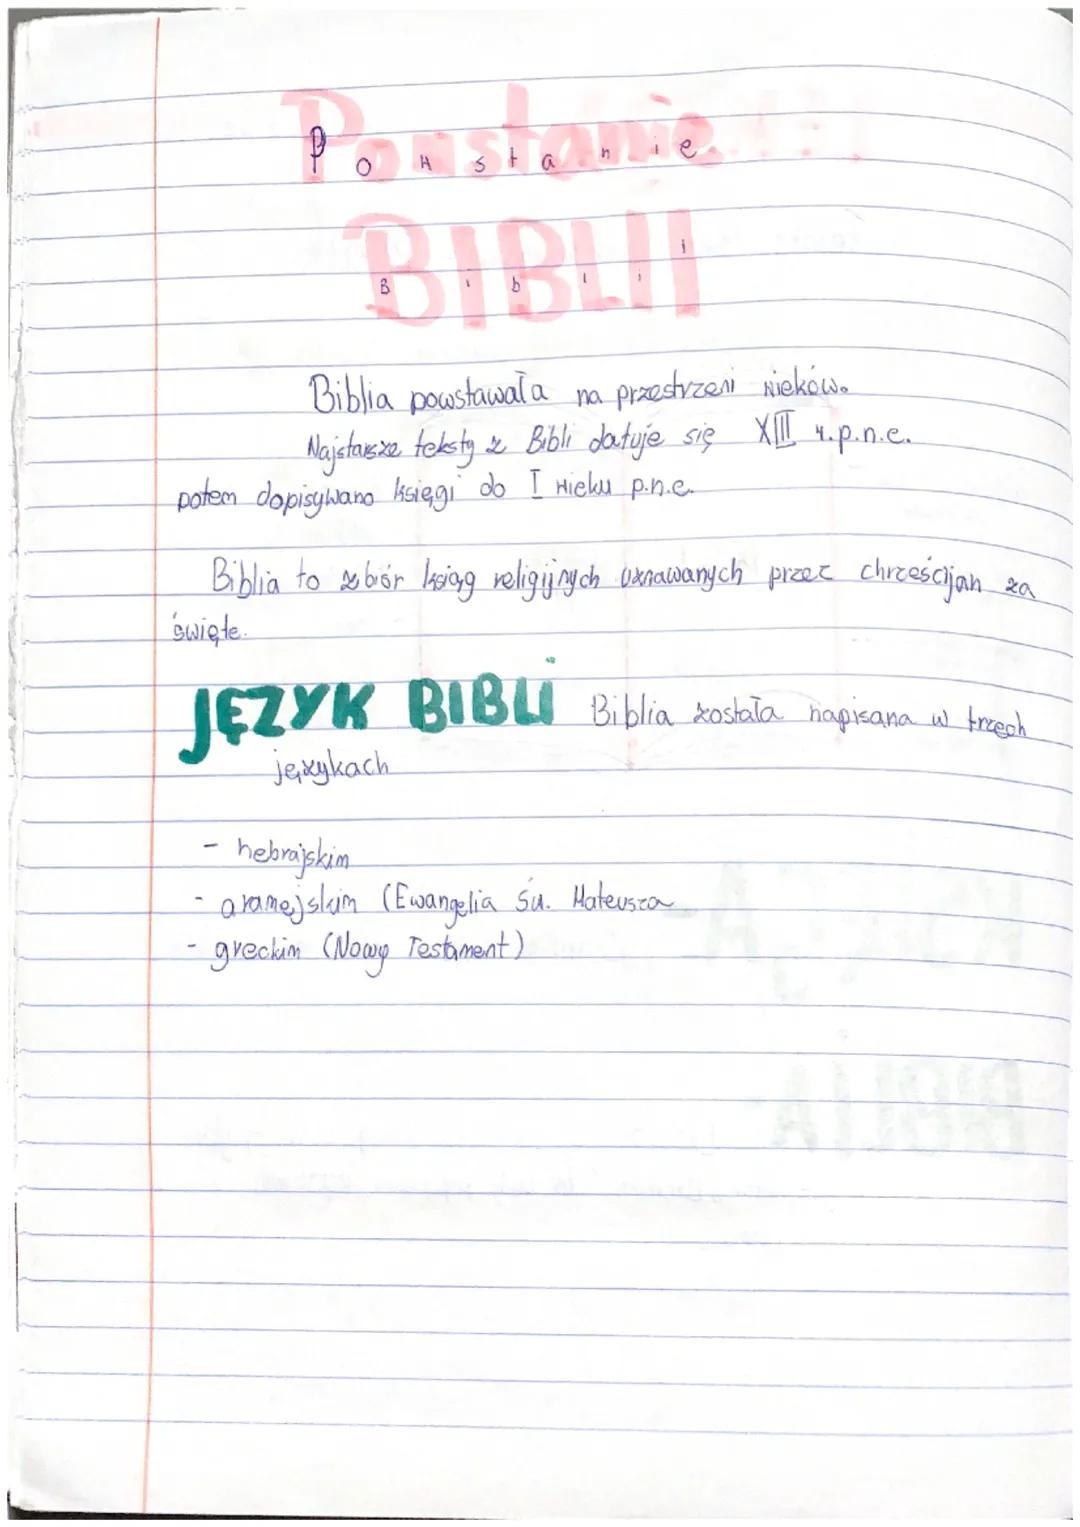 Powstanie
BIBLII
Biblia powstawała na przestrzeni wieków.
Najstarsze teksty z Bibli datuje się XIII w.p.n.e.
potem dopisywano księgi do I wieku p.n.e.
Biblia to zbiór ksiąg religijnych uznawanych przez chrześcijan za
święte.
JĘZYK BIBLI Biblia została napisana w trzech
językach
- hebrajskim
- aramejskim (Ewangelia Św. Mateusza
- greckim (Nowy Testament)